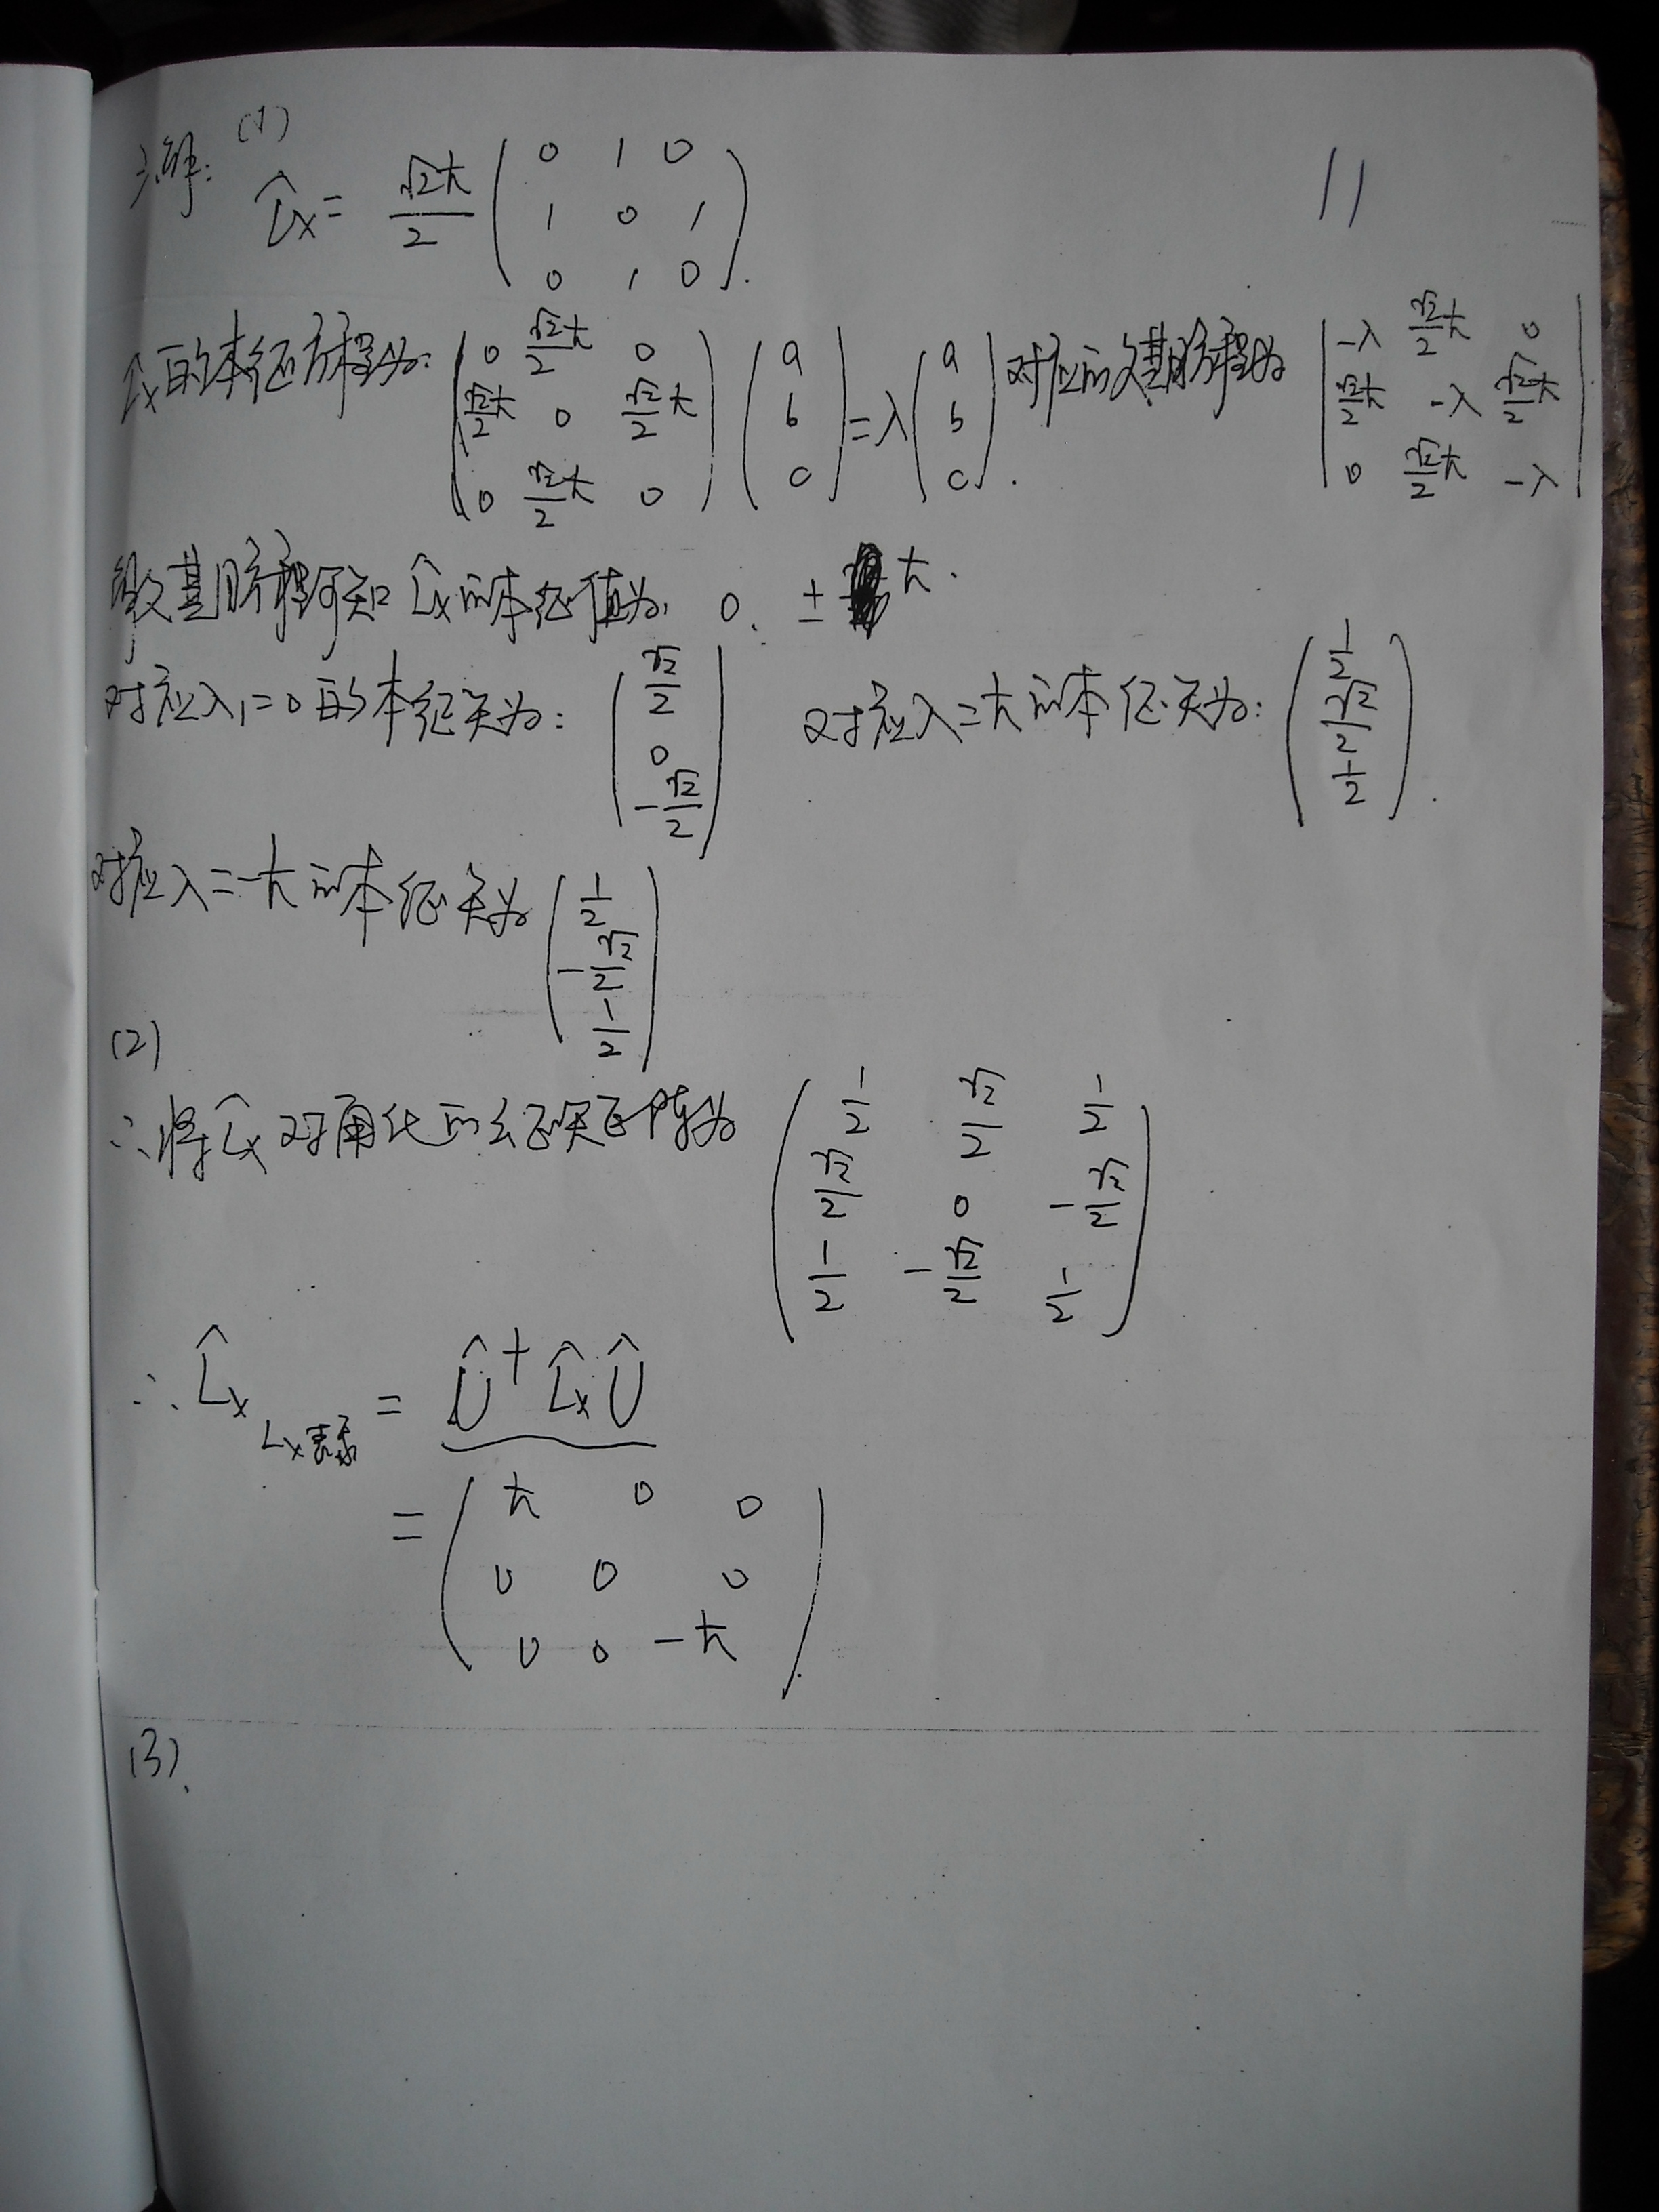 解: (1)
L̂x = √2ħ/2 ( 0 1 0 ; 1 0 1 ; 0 1 0 ).
11
L̂x的本征方程为: ( 0 √2/2ħ 0 ; √2/2ħ 0 √2/2ħ ; 0 √2/2ħ 0 ) ( a ; b ; c ) = λ ( a ; b ; c ). 对应的久期方程为 | -λ √2/2ħ 0 ; √2/2ħ -λ √2/2ħ ; 0 √2/2ħ -λ |
久期方程可知 L̂x的本征值为: 0. ± ħ.
对应λ₁=0的本征矢为: ( √2/2 ; 0 ; -√2/2 ) 对应λ=ħ的本征矢为: ( 1/2 ; √2/2 ; 1/2 ).
对应λ=-ħ的本征矢为 ( 1/2 ; -√2/2 ; 1/2 )
(2)
∴将L̂x对角化的幺正矩阵为 ( 1/2 √2/2 1/2 ; √2/2 0 -√2/2 ; 1/2 -√2/2 1/2 )
∴ L̂x Lx表象 = Û⁺ L̂x Û
= ( ħ 0 0 ; 0 0 0 ; 0 0 -ħ )
(3).